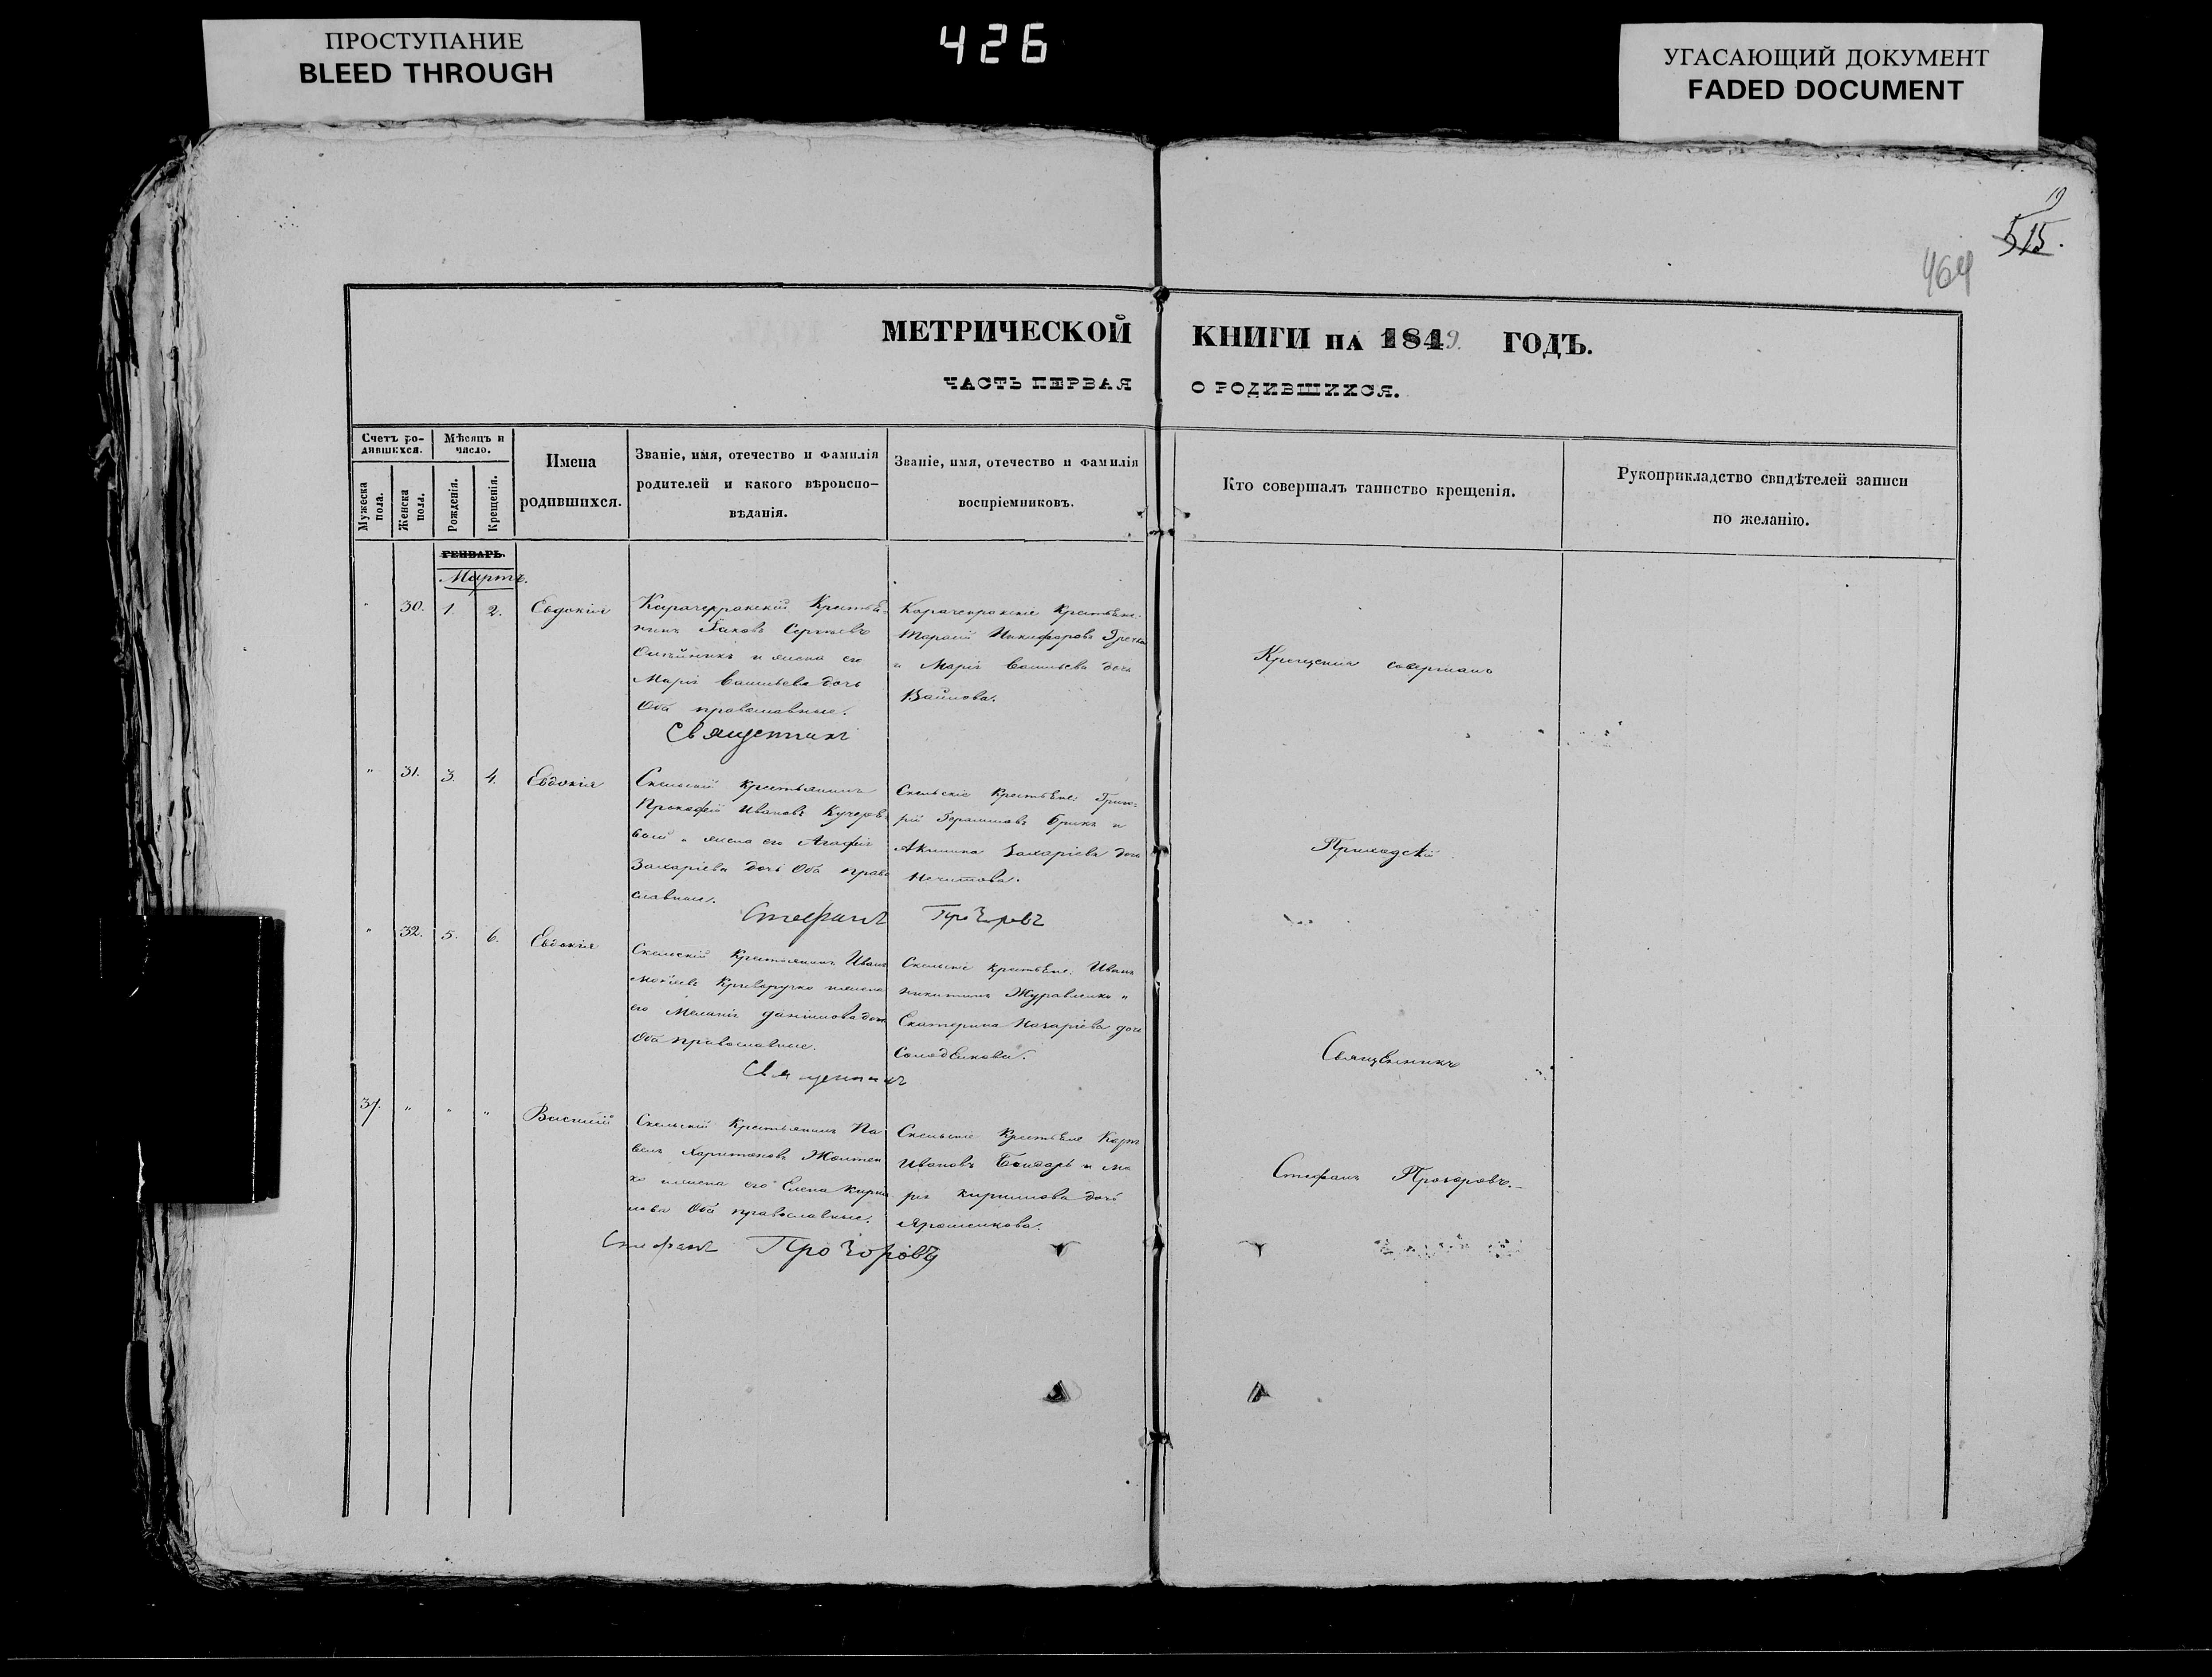 ПРОСТУПАНИЕ
BLEED THROUGH
426
УГАСАЮЩИЙ ДОКУМЕНТ
FADED DOCUMENT
515.
464
МЕТРИЧЕСКОЙ КНИГИ НА 1849 ГОДЪ.
ЧАСТЬ ПЕРВАЯ О РОДИВШИХСЯ.
Счетъ ро-
дившихся.
Мужеска
пола.
Женска
пола.
Мѣсяцъ и
число.
Рожденія.
Крещенія.
Имена
родившихся.
Званіе, имя, отечество и фамилія
родителей и какого вѣроиспо-
вѣданія.
Званіе, имя, отечество и фамилія
воспріемниковъ.
Кто совершалъ таинство крещенія.
Рукоприкладство свидѣтелей записи
по желанію.
ГЕНВАРЬ.
Мартъ.
" 30. 1. 2. Евдокія
Крестья-
нинъ Яковъ Сергѣевъ
и жена его
Марія Васильева дочь
Оба православные.
Священникъ
Тарасій Никифоровъ
и Марія Васильева дочь
Крещенія совершалъ
" 31. 3. 4. Евдокія
Скельскій крестьянинъ
Прокофій Ивановъ
жена его Агафія
Захаріева дочь Оба право
славные.
Стефанъ Прозоровъ
Скельскіе крестьѣне: Григо-
рій
Акилина Захаріева дочь
Приходскій
" 32. 5. 6. Евдокія
Скельскій Крестьянинъ Иванъ
Криворучко и жена
его Меланія Даніилова дочь
Оба православные.
Священникъ
Скельскіе крестьѣне: Иванъ
Никитинъ Журавленко и
Екатерина Назаріева дочь
Священникъ
37. " " " Василій
Скельскій Крестьянинъ Па
велъ Харитоновъ Жолтен
ко и жена его Елена Кирил
лова Оба православные.
Стефанъ Прозоровъ
Скельскіе Крестьѣне Карпъ
Ивановъ Бондарь и Ма
рія Кириллова дочь
Ярошенкова.
Стефанъ Прозоровъ.